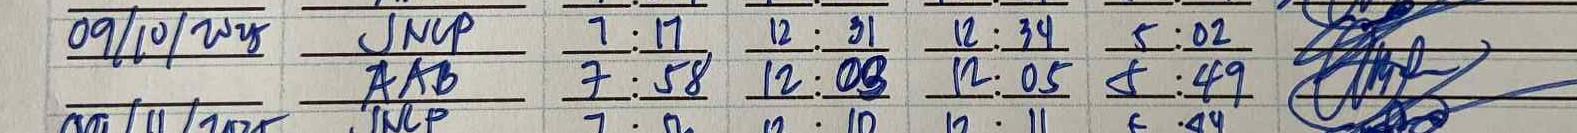 09/10/2025 JNCP 7:17 12:31 12:34 5:02
AAB 7:58 12:03 12:05 5:49
09/11/2025 JNCP 7: 12:10 12:11 5:44